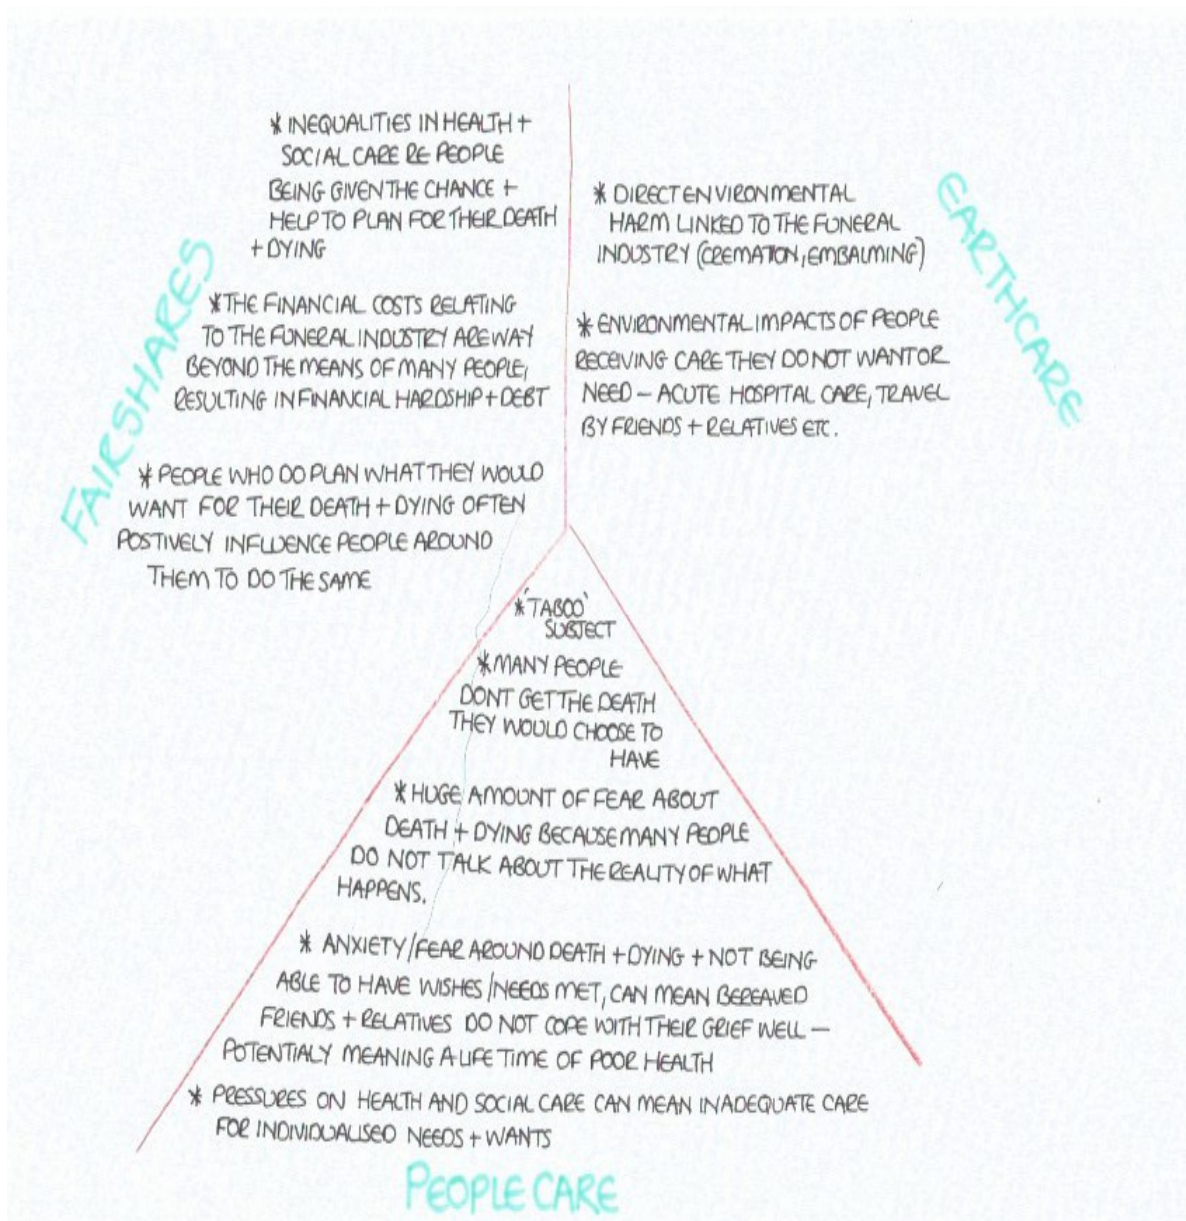 FAIRSHARES
* INEQUALITIES IN HEALTH +
SOCIAL CARE RE PEOPLE
BEING GIVEN THE CHANCE +
HELP TO PLAN FOR THEIR DEATH
+ DYING
* THE FINANCIAL COSTS RELATING
TO THE FUNERAL INDUSTRY ARE WAY
BEYOND THE MEANS OF MANY PEOPLE,
RESULTING IN FINANCIAL HARDSHIP + DEBT
* PEOPLE WHO DO PLAN WHAT THEY WOULD
WANT FOR THEIR DEATH + DYING OFTEN
POSTIVELY INFLUENCE PEOPLE AROUND
THEM TO DO THE SAME
EARTHCARE
* DIRECT ENVIRONMENTAL
HARM LINKED TO THE FUNERAL
INDUSTRY (CREMATION, EMBALMING)
* ENVIRONMENTAL IMPACTS OF PEOPLE
RECEIVING CARE THEY DO NOT WANT OR
NEED – ACUTE HOSPITAL CARE, TRAVEL
BY FRIENDS + RELATIVES ETC.
* 'TABOO'
SUBJECT
* MANY PEOPLE
DONT GET THE DEATH
THEY WOULD CHOOSE TO
HAVE
* HUGE AMOUNT OF FEAR ABOUT
DEATH + DYING BECAUSE MANY PEOPLE
DO NOT TALK ABOUT THE REALITY OF WHAT
HAPPENS.
* ANXIETY/FEAR AROUND DEATH + DYING + NOT BEING
ABLE TO HAVE WISHES/NEEDS MET, CAN MEAN BEREAVED
FRIENDS + RELATIVES DO NOT COPE WITH THEIR GRIEF WELL –
POTENTIALY MEANING A LIFE TIME OF POOR HEALTH
* PRESSURES ON HEALTH AND SOCIAL CARE CAN MEAN INADEQUATE CARE
FOR INDIVIDUALISED NEEDS + WANTS
PEOPLE CARE